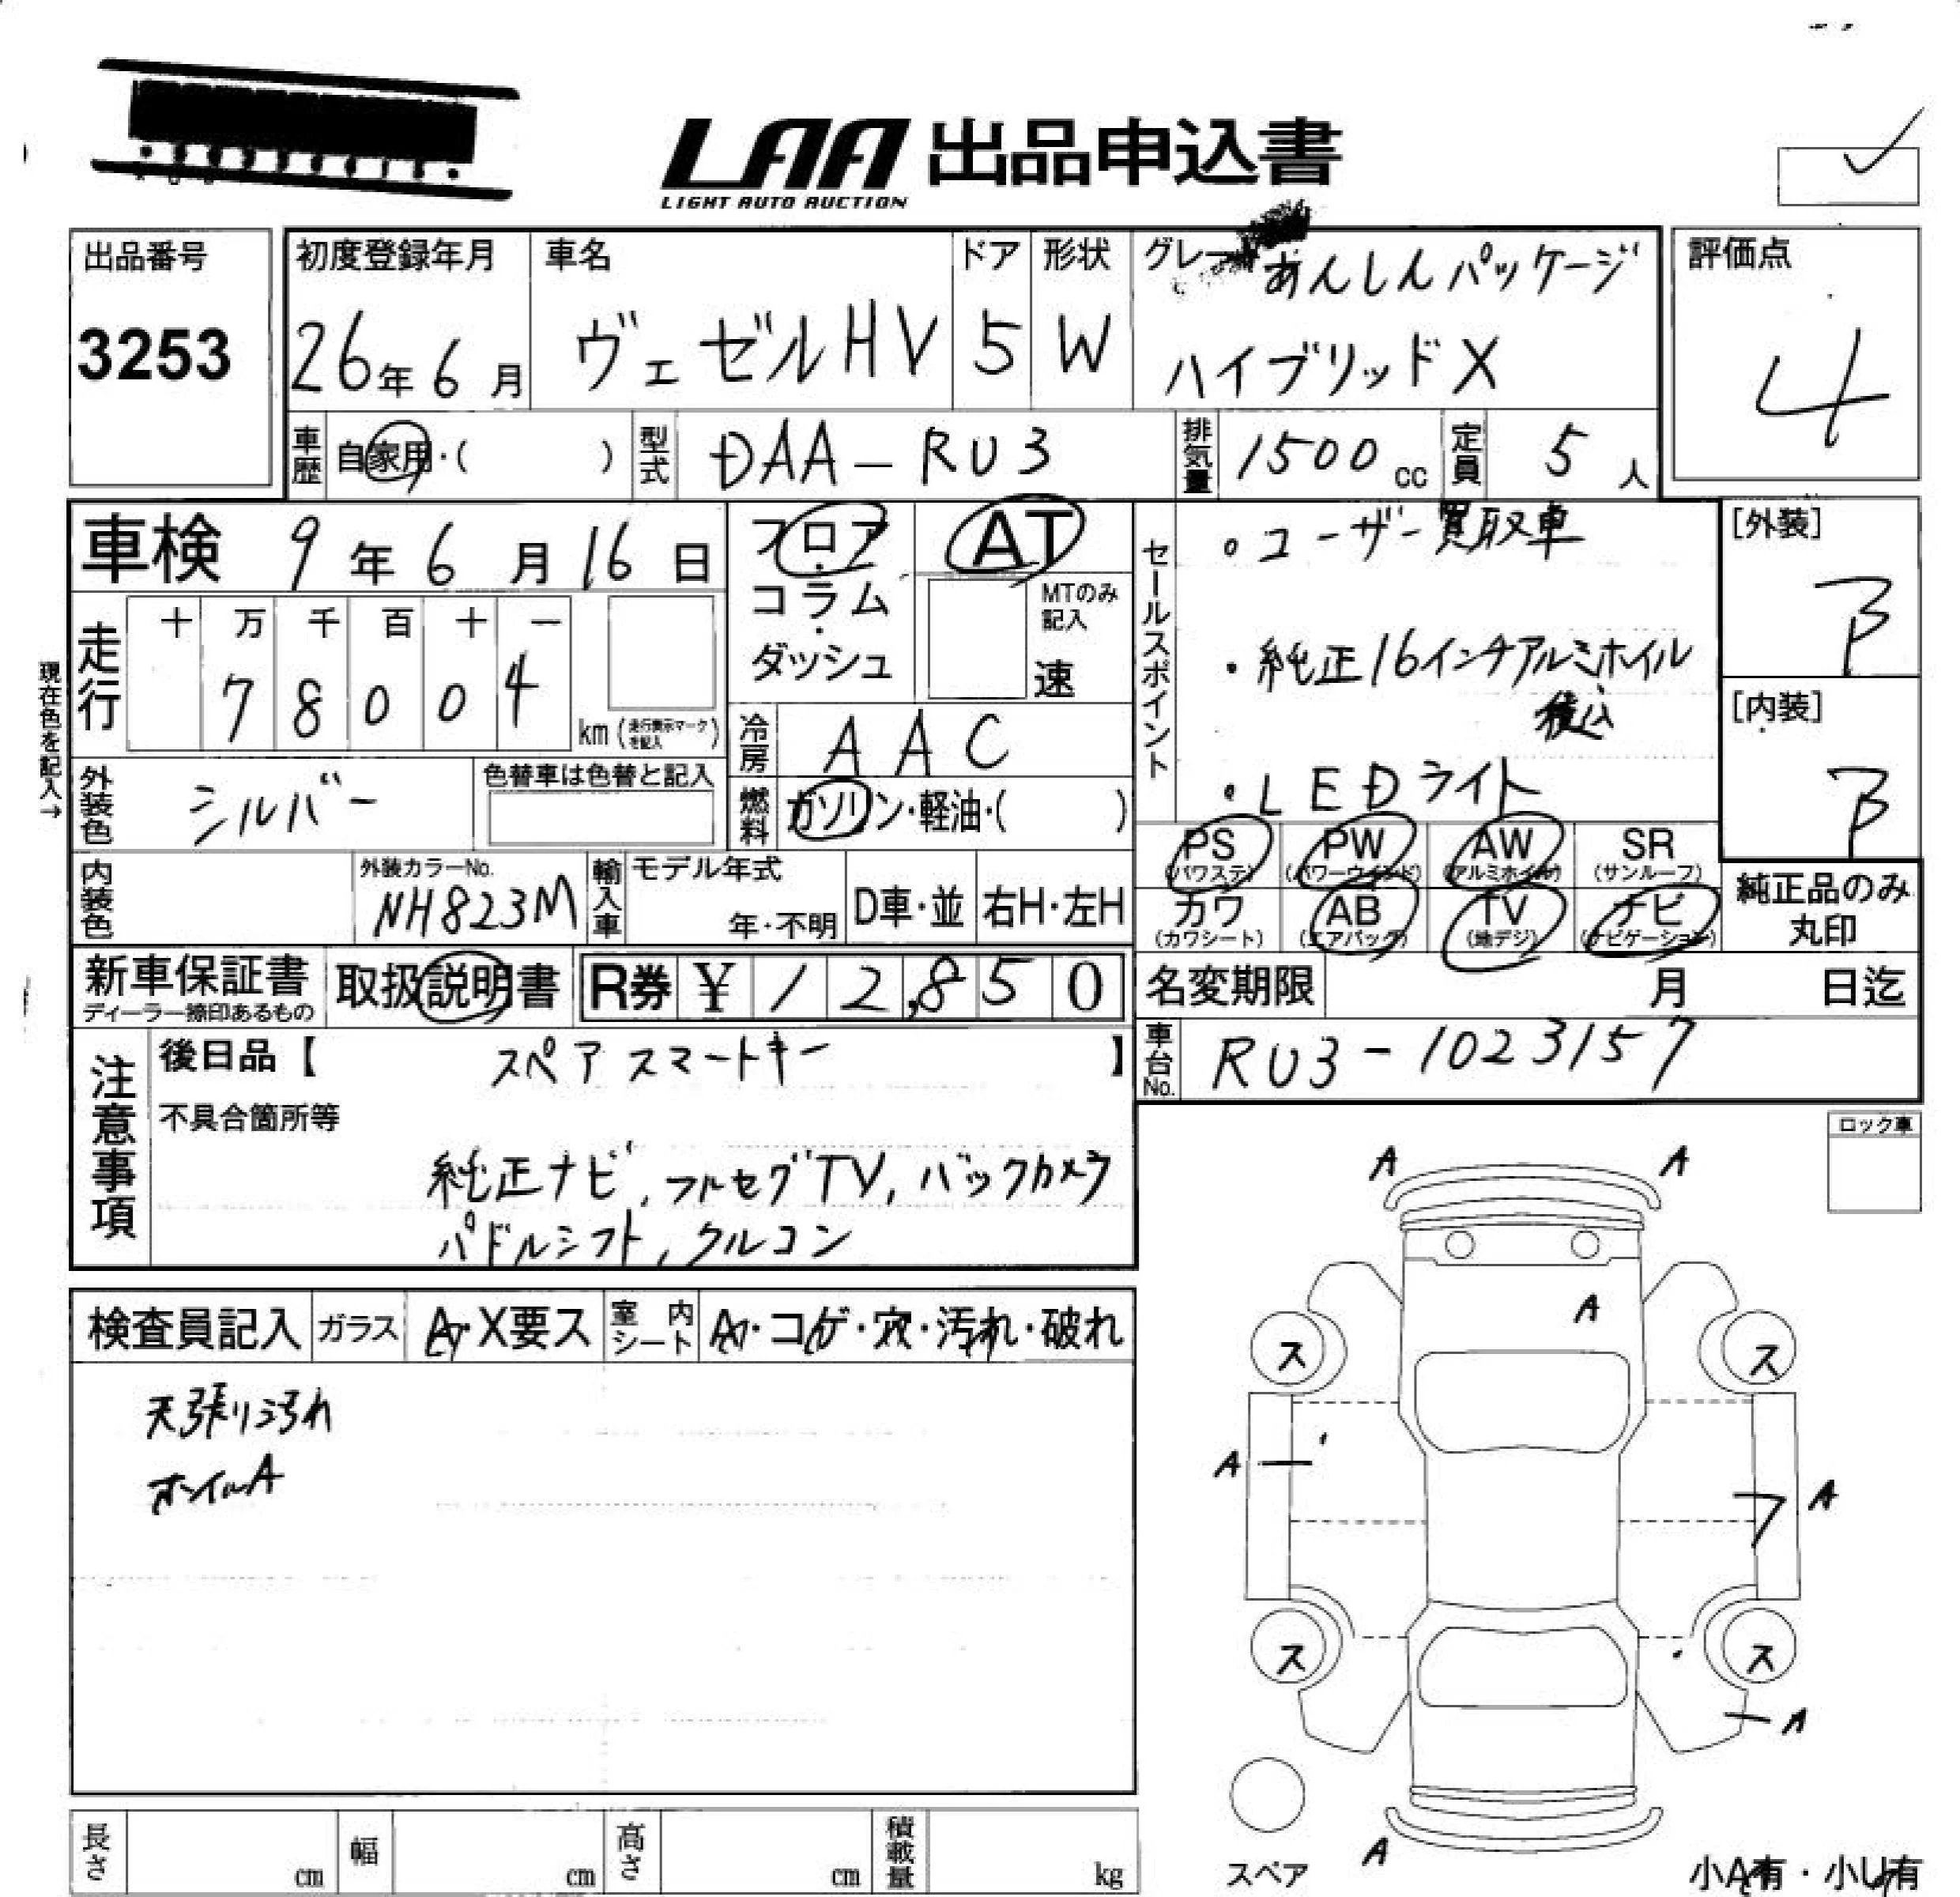 LAA 出品申込書
LIGHT AUTO AUCTION
出品番号
3253
初度登録年月
26年 6月
車名
ヴェゼルHV
ドア
5
形状
W
グレード
あんしんパッケージ
ハイブリッドX
評価点
4
車歴
自家用・( )
型式
DAA-RU3
排気量
1500 cc
定員
5 人
車検 9年 6月 16日
フロア・コラム・ダッシュ
AT
MTのみ記入
速
セールスポイント
・ユーザー買取車
・純正16インチアルミホイル
積込
・LEDライト
[外装]
B
[内装]
B
現在色を記入→
走行
十 万 千 百 十 一
7 8 0 0 4
km (走行表示マークを記入)
冷房
AAC
外装色
シルバー
色替車は色替と記入
燃料
ガソリン・軽油・( )
PS (パワステ)
PW (パワーウインド)
AW (アルミホイル)
SR (サンルーフ)
カワ (カワシート)
AB (エアバッグ)
TV (地デジ)
ナビ (ナビゲーション)
純正品のみ
丸印
内装色
外装カラーNo.
NH823M
輸入車
モデル年式
年・不明
D車・並
右H・左H
新車保証書
ディーラー捺印あるもの
取扱説明書
R券 ¥12,850
名変期限 月 日迄
車台No.
RU3-1023157
注意事項
後日品【 スペアスマートキー 】
不具合箇所等
純正ナビ, フルセグTV, バックカメラ
パドルシフト, クルコン
ロック車
検査員記入
ガラス
A・X要ス
室内シート
A・コゲ・穴・汚れ・破れ
天張り汚れ
ホイルA
A A
A
ス ス
A A
ス ス
A
A
スペア
小A有・小U有
長さ cm
幅 cm
高さ cm
積載量 kg